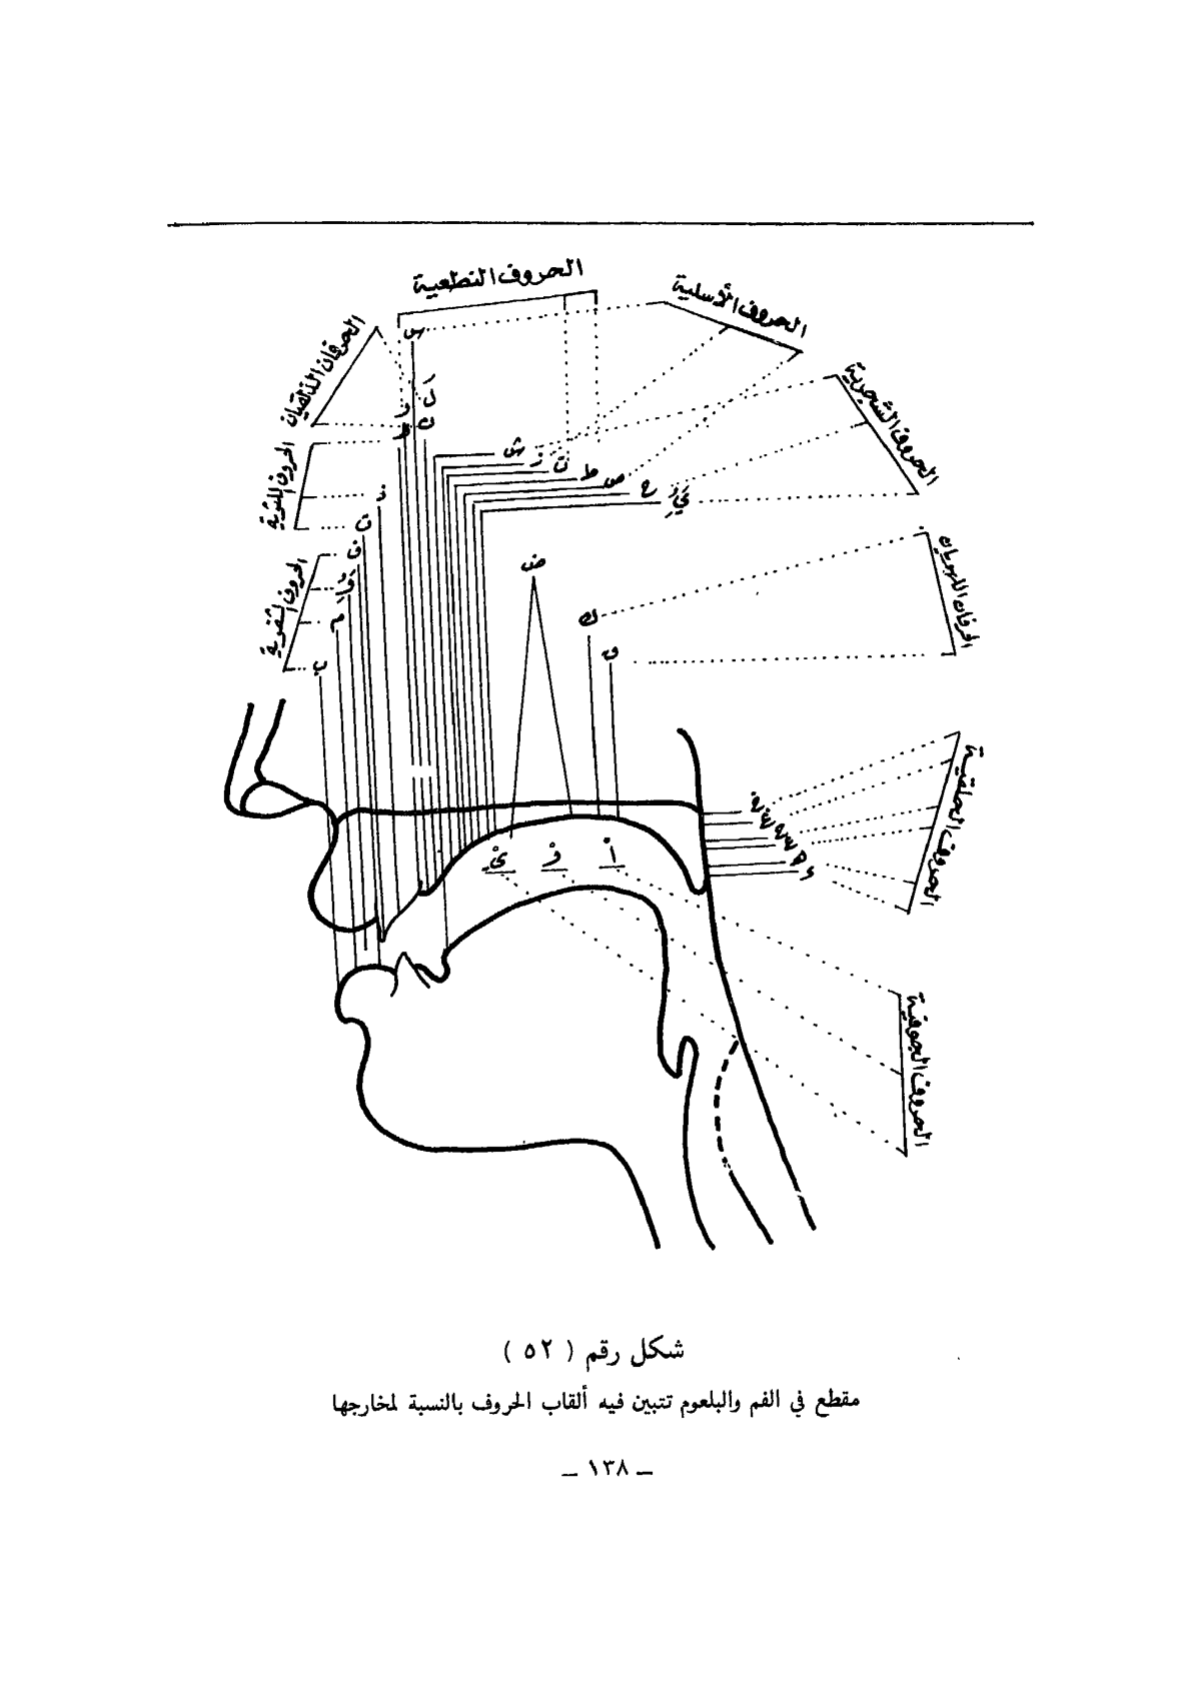 الحروف النطعية
الحروف الأسلية
الحرفان الذلقيان
الحروف الشجرية
الحروف اللثوية
الحروف الشفوية
الحرفان اللهويان
الحروف الحلقية
الحروف الجوفية
س
ل
ن
ش
ز
ت
ط
ص
ج
ذ
ف
م
ب
ض
ك
ق
ء
يْ وْ ا
شكل رقم ( ٥٢ )
مقطع في الفم والبلعوم تتبين فيه ألقاب الحروف بالنسبة لمخارجها
– ١٣٨ –